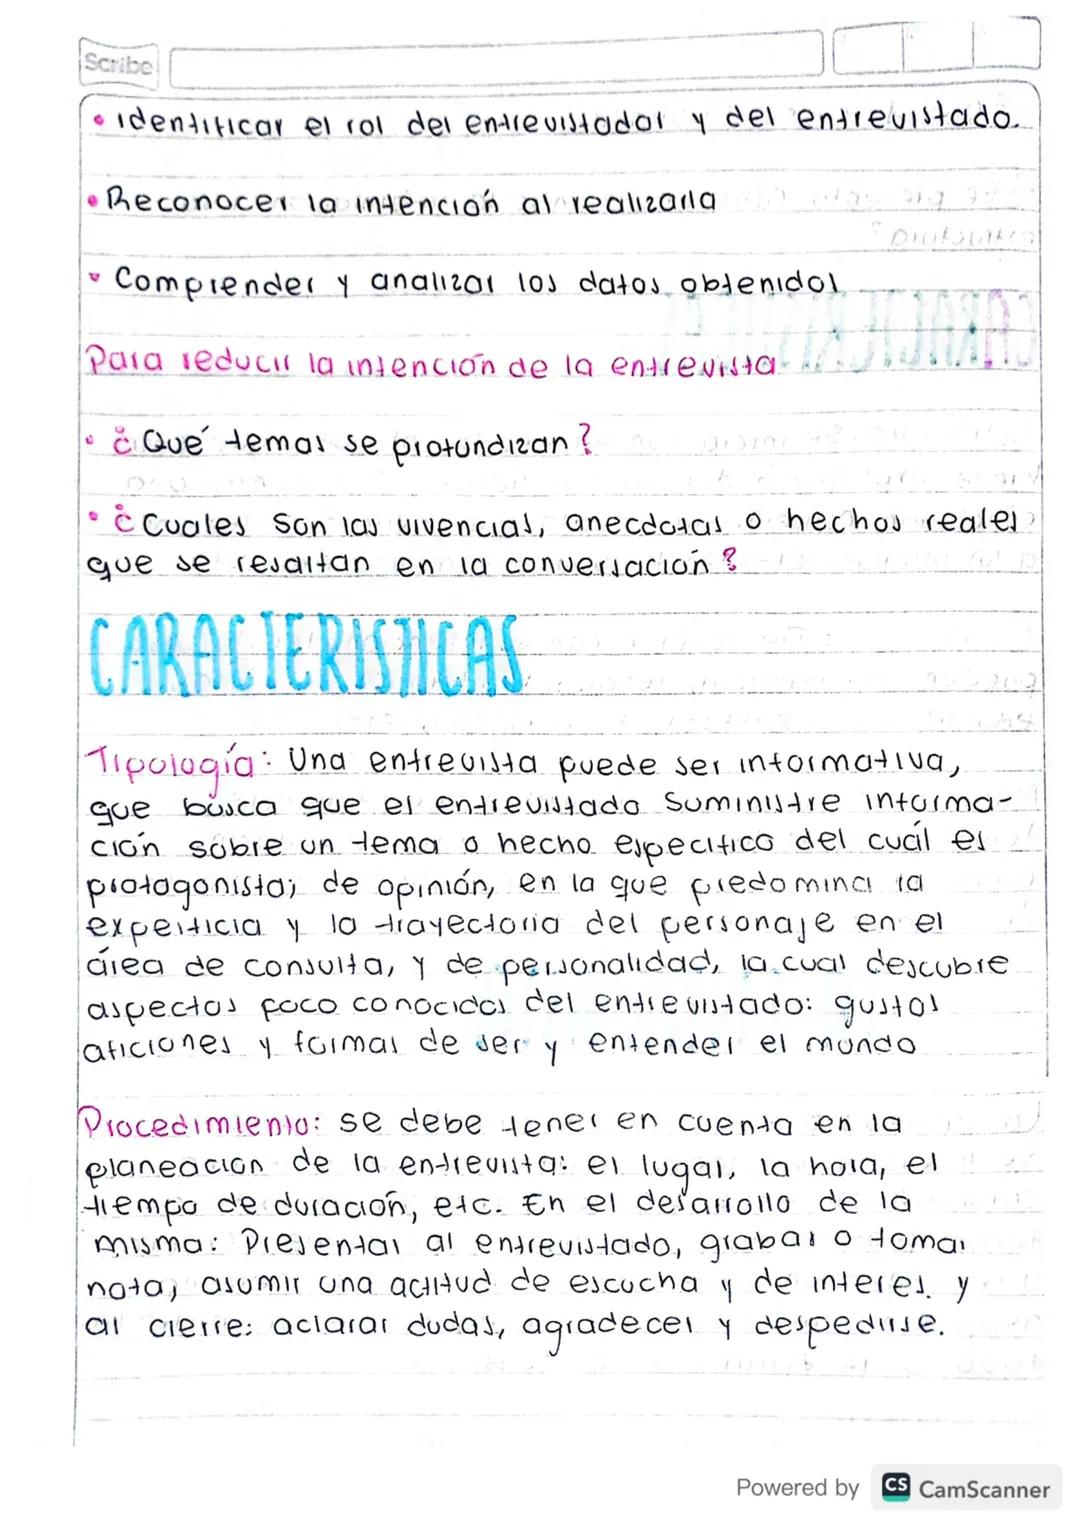 Scribe
• identificar el rol del entrevistador y del entrevistado.
• Reconocer la intención al realizarla
• Comprender y analizar los datos obtenidos
Para reducir la intención de la entrevista
• ¿Qué temas se profundizan?
• ¿Cuales son las vivencias, anecdotas o hechos reales
que se resaltan en la conversación?
CARACTERISTICAS
Tipología: Una entrevista puede ser informativa,
que busca que el entrevistado suministre informa-
ción sobre un tema o hecho especifico del cuál es
protagonista; de opinión, en la que predomina la
experticia y la trayectoria del personaje en el
área de consulta, y de personalidad, la cual descubre
aspectos poco conocidos del entrevistado: gustos
aficiones y formas de ser y entender el mundo
Procedimiento: se debe tener en cuenta en la
planeacion de la entrevista: el lugar, la hora, el
tiempo de duración, etc. En el desarrollo de la
misma: Presentar al entrevistado, grabar o tomar
nota, asumir una actitud de escucha y de interes. y
al cierre: aclarar dudas, agradecer y despedirse.
Powered by CS CamScanner